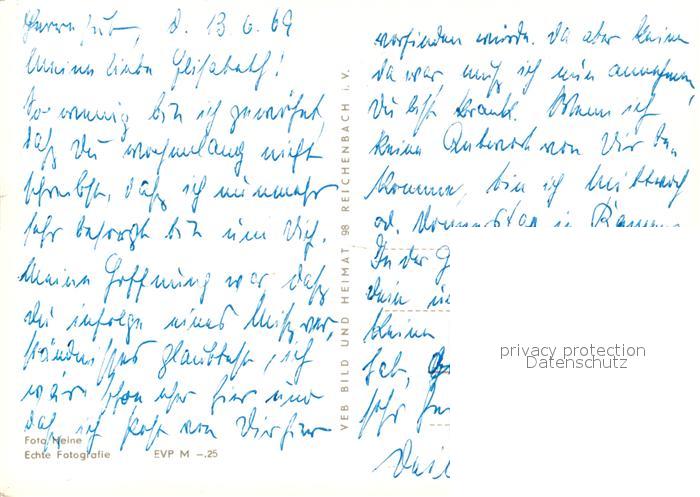 Herrnhut, d. 13.6.69
Meine liebe Elisabeth!
So wenig bin ich gewöhnt,
daß Du wochenlang nicht
schreibst, daß ich nunmehr
sehr besorgt bin um Dich.
Meine Hoffnung war, daß
Du infolge eines Mißver-
ständnisses glaubtest, ich
wäre schon eher hier und
daß ich Post von Dir hier
vorfinden würde. Da aber keine
da war, muß ich nun annehmen
Du bist krank. Wenn ich
keine Antwort von Dir be-
komme, bin ich Mittwoch
od. Donnerstag in
In der
Dein
keinen
hab,
sehr
Dein
VEB BILD UND HEIMAT 98 REICHENBACH i. V.
Foto Heine
Echte Fotografie EVP M -.25
privacy protection
Datenschutz